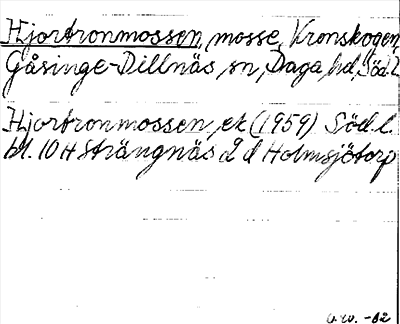 Hjortronmossen, mosse, Kronskogen,
Gåsinge-Dillnäs sn, Daga hd, Söd. l.
Hjortronmossen, ek (1959) Söd. l.
bl. 10 H Strängnäs 2 d Holmsjötorp
-62